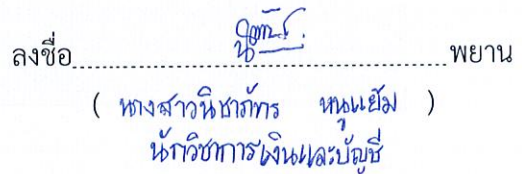 ลงชื่อ............................................................พยาน
( นางสาวนิชาภัทร หนูแย้ม )
นักวิชาการเงินและบัญชี